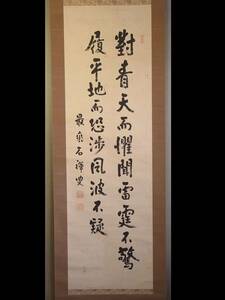 對青天而懼聞雷霆不驚
履平地而恐涉風波不疑
最乘石禪叟